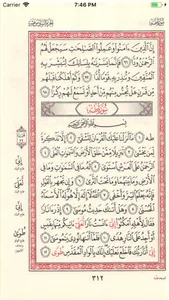 Carrier 7:46 PM
إِنَّ ٱلَّذِينَ ءَامَنُوا۟ وَعَمِلُوا۟ ٱلصَّـٰلِحَـٰتِ سَيَجْعَلُ لَهُمُ
ٱلرَّحْمَـٰنُ وُدًّا ٩٦ فَإِنَّمَا يَسَّرْنَـٰهُ بِلِسَانِكَ لِتُبَشِّرَ بِهِ
ٱلْمُتَّقِينَ وَتُنذِرَ بِهِۦ قَوْمًا لُّدًّا ٩٧ وَكَمْ أَهْلَكْنَا قَبْلَهُم
مِّن قَرْنٍ هَلْ تُحِسُّ مِنْهُم مِّنْ أَحَدٍ أَوْ تَسْمَعُ لَهُمْ رِكْزًۢا ٩٨
سُورَةُ طه
بِسْمِ ٱللَّهِ ٱلرَّحْمَـٰنِ ٱلرَّحِيمِ
طه ١ مَآ أَنزَلْنَا عَلَيْكَ ٱلْقُرْءَانَ لِتَشْقَىٰٓ ٢ إِلَّا تَذْكِرَةً
لِّمَن يَخْشَىٰ ٣ تَنزِيلًا مِّمَّنْ خَلَقَ ٱلْأَرْضَ وَٱلسَّمَـٰوَٰتِ ٱلْعُلَى ٤
ٱلرَّحْمَـٰنُ عَلَى ٱلْعَرْشِ ٱسْتَوَىٰ ٥ لَهُۥ مَا فِى ٱلسَّمَـٰوَٰتِ وَمَا فِى
ٱلْأَرْضِ وَمَا بَيْنَهُمَا وَمَا تَحْتَ ٱلثَّرَىٰ ٦ وَإِن تَجْهَرْ بِٱلْقَوْلِ
فَإِنَّهُۥ يَعْلَمُ ٱلسِّرَّ وَأَخْفَى ٧ ٱللَّهُ لَآ إِلَـٰهَ إِلَّا هُوَ لَهُ ٱلْأَسْمَآءُ
ٱلْحُسْنَىٰ ٨ وَهَلْ أَتَىٰكَ حَدِيثُ مُوسَىٰٓ ٩ إِذْ رَءَا نَارًا
فَقَالَ لِأَهْلِهِ ٱمْكُثُوٓا۟ إِنِّىٓ ءَانَسْتُ نَارًا لَّعَلِّىٓ ءَاتِيكُم مِّنْهَا بِقَبَسٍ
أَوْ أَجِدُ عَلَى ٱلنَّارِ هُدًى ١٠ فَلَمَّآ أَتَىٰهَا نُودِىَ يَـٰمُوسَىٰٓ ١١
إِنِّىٓ أَنَا۠ رَبُّكَ فَٱخْلَعْ نَعْلَيْكَ إِنَّكَ بِٱلْوَادِ ٱلْمُقَدَّسِ طُوًى ١٢
٣١٢